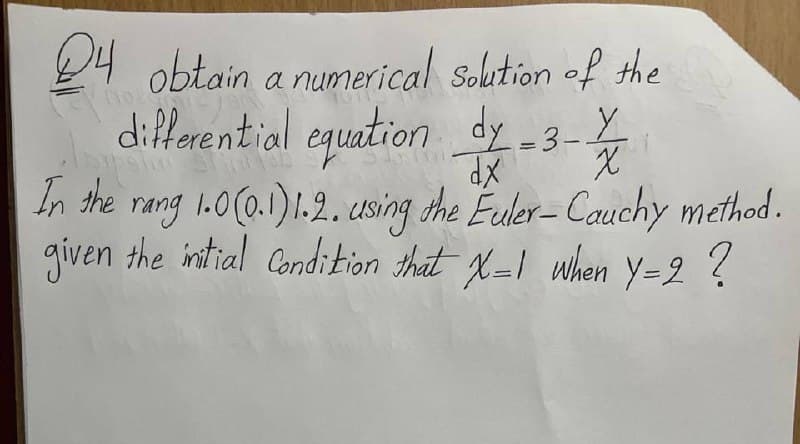 Q4 obtain a numerical solution of the
differential equation dy/dX = 3 - Y/X
In the rang 1.0(0.1)1.2. using the Euler-Cauchy method.
given the initial Condition that X=1 when Y=2 ?